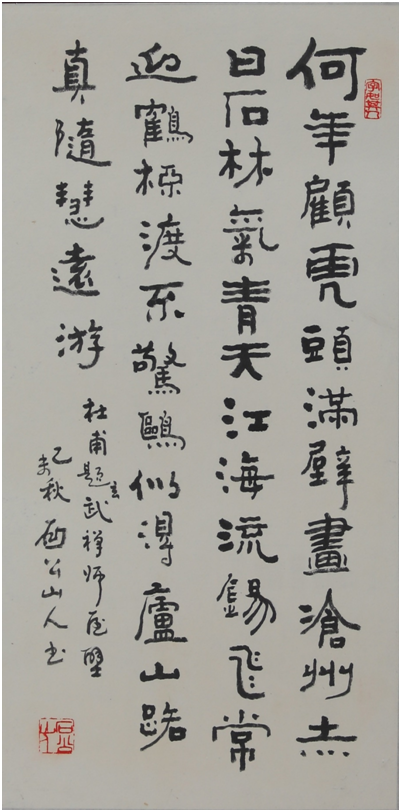 何年顧虎頭滿壁畫滄州赤
日石林氣青天江海流錫飛常
迎鶴桮渡不驚鷗似得廬山路
真隨慧遠游
杜甫題玄武禪師屋壁
己未秋 公山人书